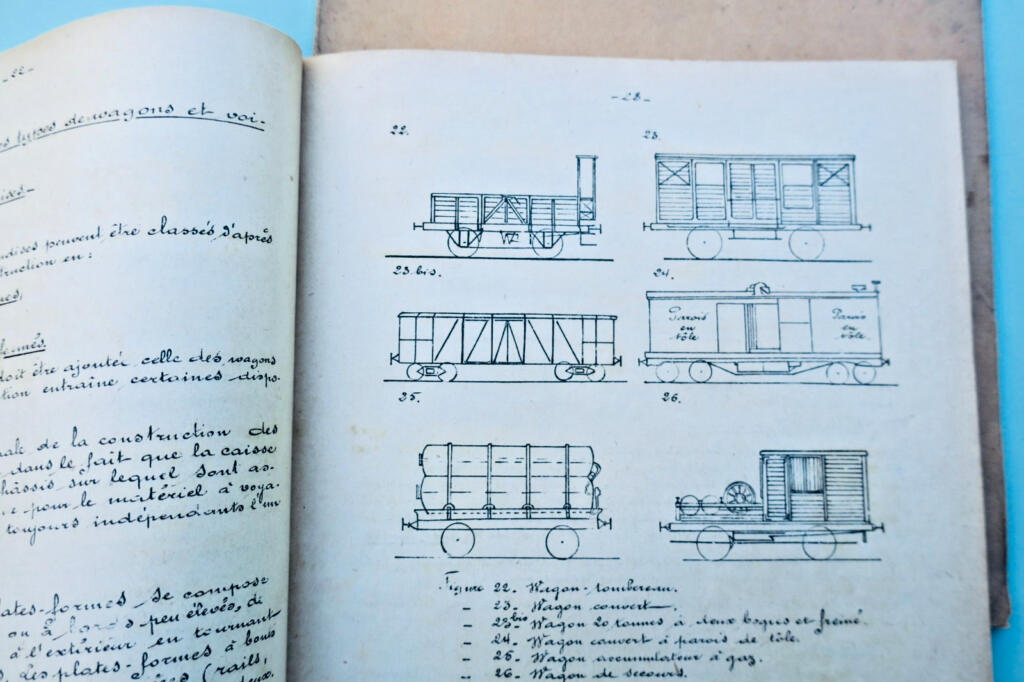 -22-
types de wagons et voi-
ndises peuvent être classés d'après
truction en:
fermés
doit être ajoutée celle des wagons
tion entraîne certaines dispo-
de la construction des
dans le fait que la caisse
châssis sur lequel sont as-
pour le matériel à voya-
toujours indépendants l'un
plates-formes se compose
ou à bords peu élevés, di
à l'extérieur en tournant
Les plates-formes à bouts
(rails,
-23-
22.
23.
23 bis.
24.
Parois
en
tôle.
Parois
en
tôle.
25.
26.
Figure 22. Wagon-tombereau.
- 23- Wagon couvert-.
- 23 bis Wagon 20 tonnes à deux bogies et freiné.
- 24. Wagon couvert à parois de tôle.
- 25- Wagon accumulateur à gaz.
- 26- Wagon de secours.